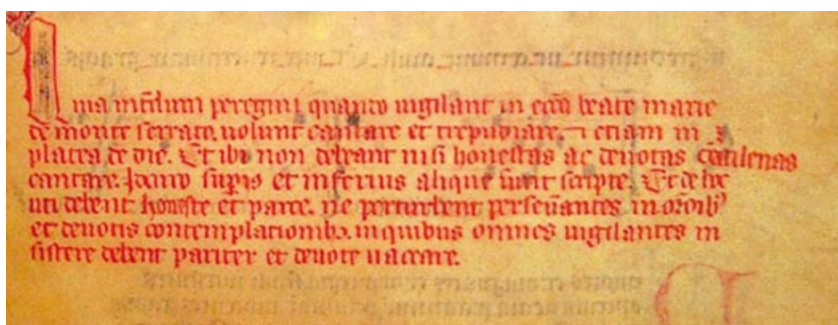 uia interdum peregrini quando uigilant in eccͣ beate marie
de monte serrato uolunt cantare et trepudiare. ⁊ etiam in
platea de die. Et ibi non debeant nisi honestas ac deuotas cātilenas
cantare. Idcirco suꝑius et inferius alique sunt scripte. Et de hoc
uti debent honeste et parce. ne perturbent perseuātes in orōibꝰ
et deuotis contemplationibꝫ. in quibus omnes uigilantes in
sistere debent pariter et deuote uaccare.